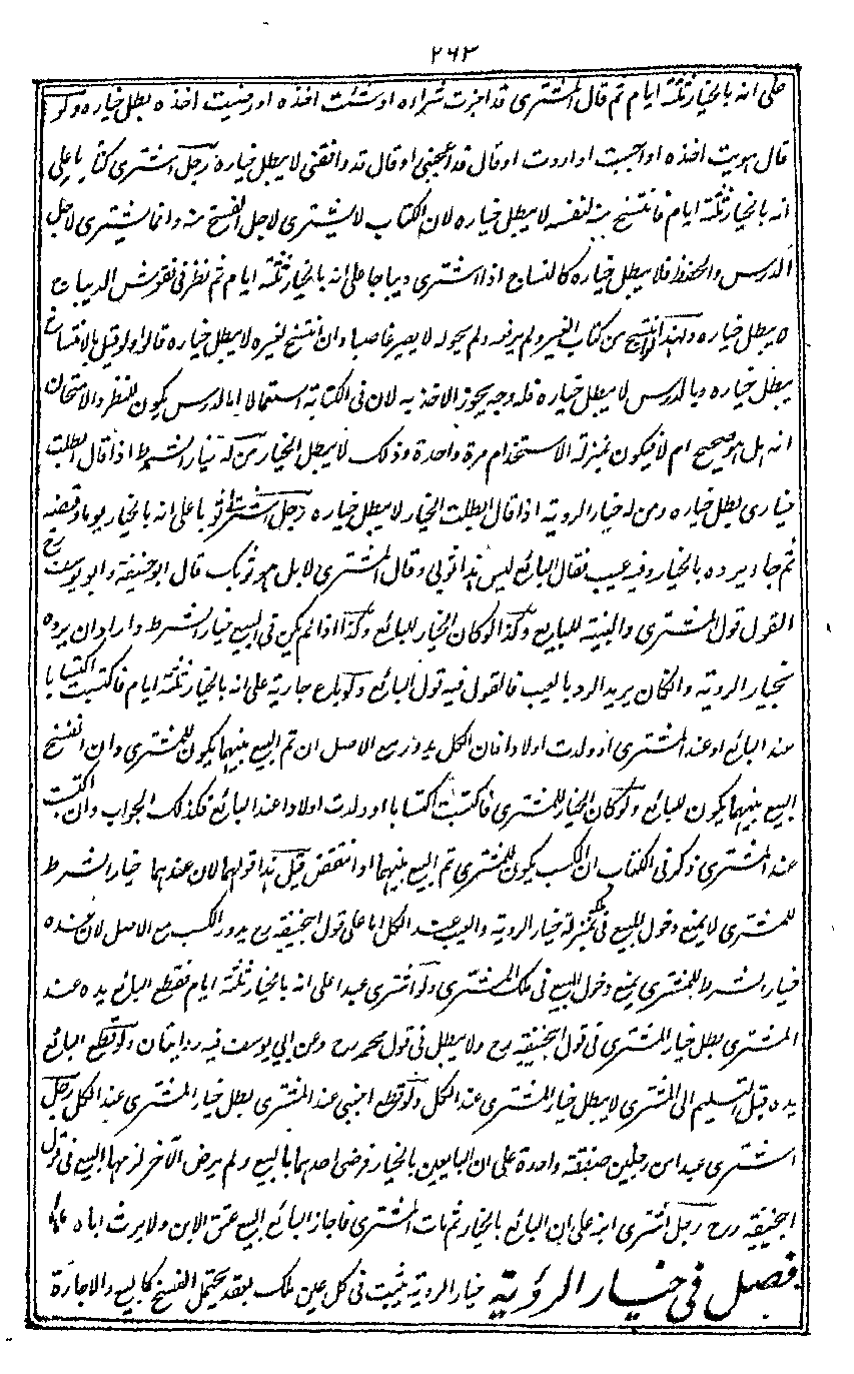 ٢٦٣
على انه بالخيار ثلثة ايام ثم قال المشترى قد اجزت شراءه او شئت اخذه او رضيت اخذه بطل خياره ولو
قال هويت اخذه او احببت او اردت او قال قد اعجبنى او قال قد وافقنى لا يبطل خياره رجل اشترى كتابا على
انه بالخيار ثلثة ايام فانتسخ منه لنفسه لا يبطل خياره لان الكتاب لا يشترى لاجل النسخ منه وانما يشترى لاجل
الدرس والحفظ فلا يبطل خياره كالنساج اذا اشترى ديباجا على انه بالخيار ثلثة ايام ثم نظر فى نقوش الديباج
لا يبطل خياره ولهذا لو انتسخ من كتاب الغير ولم يرفعه ولم يحوله لا يصير غاصبا وان انتسخ لغيره لا يبطل خياره قالوا ولو قيل بالانتساخ
يبطل خياره وبالدرس لا يبطل خياره فله وجه يجوز الاخذ به لان فى الكتابة استعمالا اما الدرس يكون للنظر والامتحان
انه هل هو صحيح ام لا فيكون بمنزلة الاستخدام مرة واحدة وذلك لا يبطل الخيار من له خيار الشرط اذا قال ابطلت
خيارى بطل خياره ومن له خيار الروية اذا قال ابطلت الخيار لا يبطل خياره رجل اشترى ثوبا على انه بالخيار يوما وقبضه
ثم جاء يرده بالخيار وفيه عيب فقال البائع ليس هذا ثوبى وقال المشترى لا بل هو ثوبك قال ابو حنيفة وابو يوسف رح
القول قول المشترى والبينة للبايع وكذا لو كان الخيار للبائع وكذا اذا لم يكن فى البيع خيار الشرط واراد ان يرده
بخيار الروية وان كان يريد الرد بالعيب فالقول فيه قول البائع ولو باع جارية على انه بالخيار ثلثة ايام فاكتسبت اكتسابا
عند البائع او عند المشترى او ولدت اولادا فان الكل يدور مع الاصل ان تم البيع بينهما يكون للمشترى وان انفسخ
البيع بينهما يكون للبائع ولو كان الخيار للمشترى فاكتسبت اكتسابا او ولدت اولادا عند البائع فكذلك الجواب وان اكتسبت
عند المشترى ذكر فى الكتاب ان الكسب يكون للمشترى تم البيع بينهما او انتقض قيل هذا قولهما لان عندهما خيار الشرط
للمشترى لا يمنع دخول المبيع فى ملكه بمنزلة خيار الروية والعيب عند الكل اما على قول ابى حنيفة رح يدور الكسب مع الاصل لان عنده
خيار الشرط للمشترى يمنع دخول المبيع فى ملك المشترى ولو اشترى عبدا على انه بالخيار ثلثة ايام فقطع البائع يده عند
المشترى بطل خيار المشترى فى قول ابى حنيفة رح ولا يبطل فى قول محمد رح وعن ابى يوسف فيه روايتان ولو قطع البائع
يده قبل التسليم الى المشترى لا يبطل خيار المشترى عند الكل ولو قطع اجنبى عند المشترى بطل خيار المشترى عند الكل رجل
اشترى عبدا من رجلين صفقة واحدة على ان البايعين بالخيار فرضى احدهما بالبيع ولم يرض الآخر لزمهما البيع فى قول
ابى حنيفة رح رجل اشترى ابنه على ان البائع بالخيار ثم مات المشترى فاجاز البائع البيع عتق الابن ولا يرث اباه
فصل فى خيار الرؤية خيار الروية يثبت فى كل عين ملك بعقد يحتمل الفسخ كالبيع والاجارة